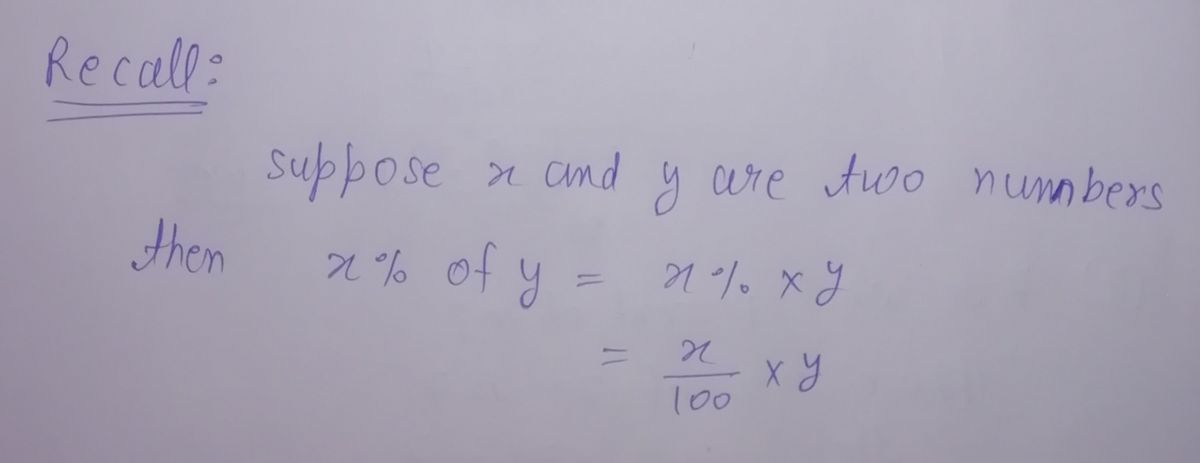 Recall:
suppose x and y are two numbers
then x% of y = x% × y
= x/100 × y